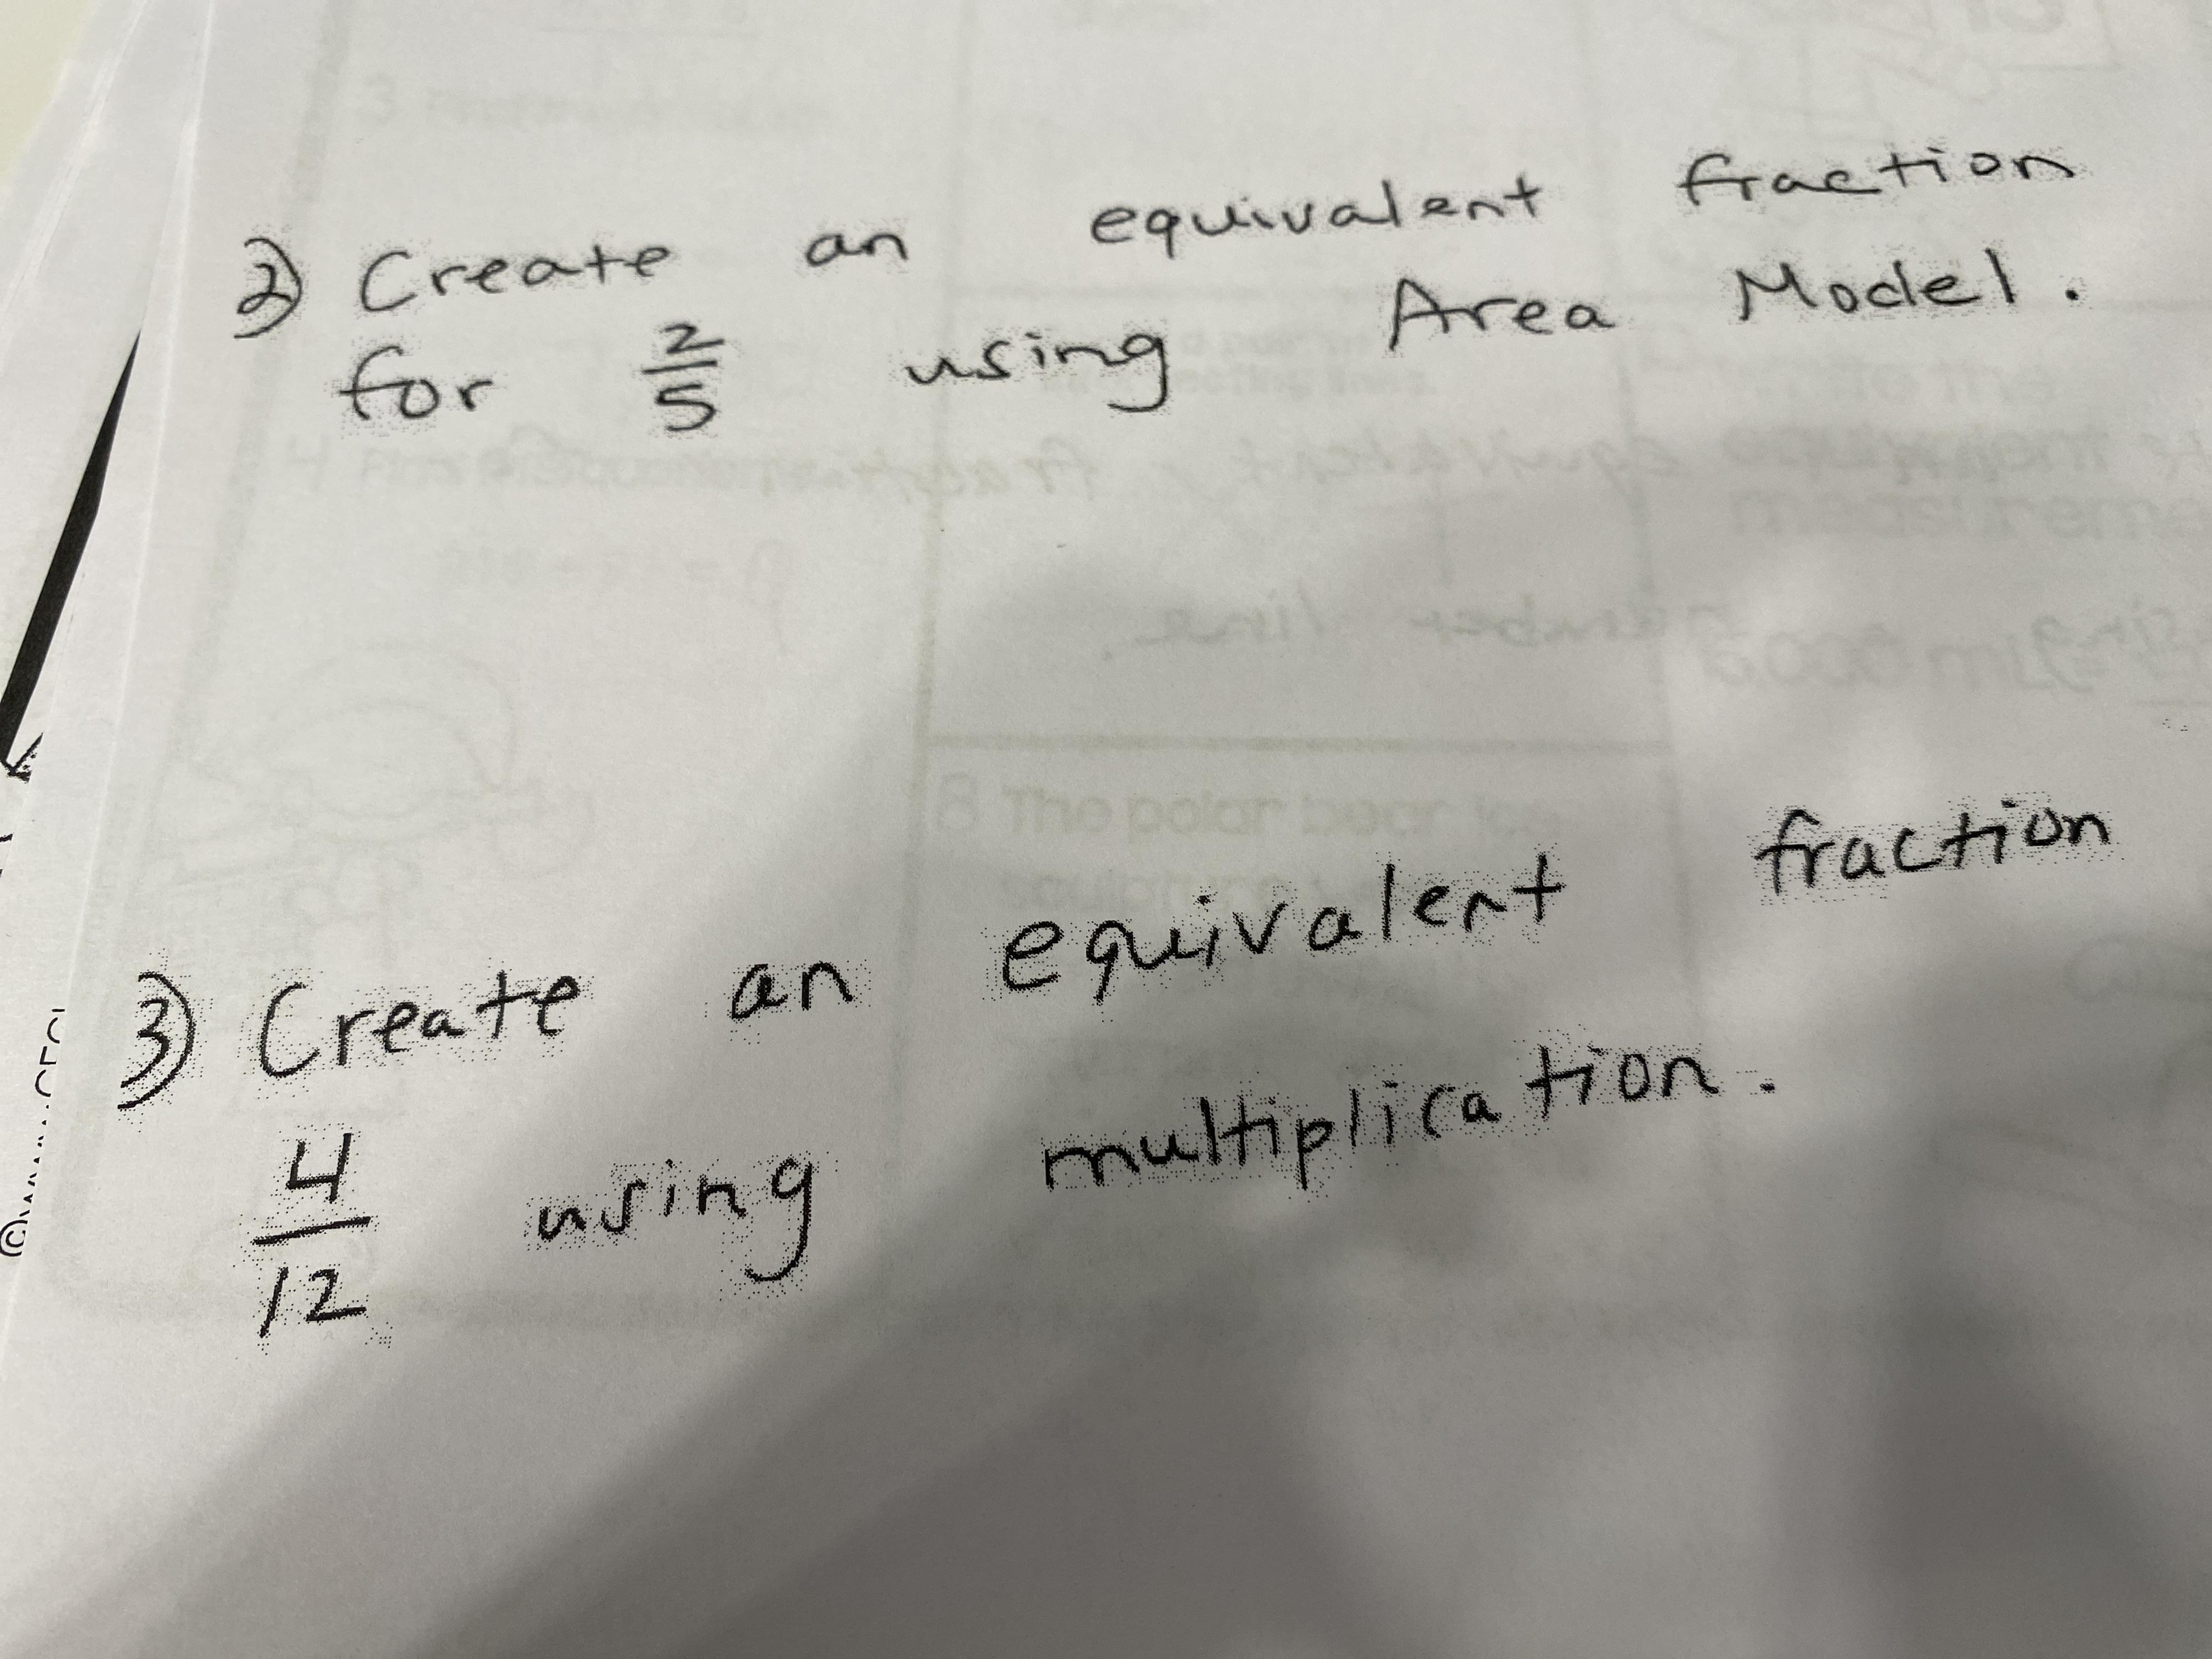 2) Create an equivalent fraction
for 2/5 using Area Model.
number line.
8 The polar bear
3) Create an equivalent fraction
4/12 using multiplication.